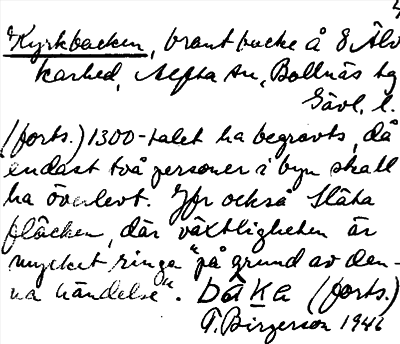 4
Kyrkbacken, brant backe å 8 Älv
karhed, Alfta sn, Bollnäs tg
Gävl. l.
(forts.) 1300-talet ha begravts, då
endast två personer i byn skall
ha överlevt. Jfr också Släta
fläcken, där växtligheten är
mycket ringa "på grund av den-
na händelse". bàka (forts.)
T. Birgerson 1946